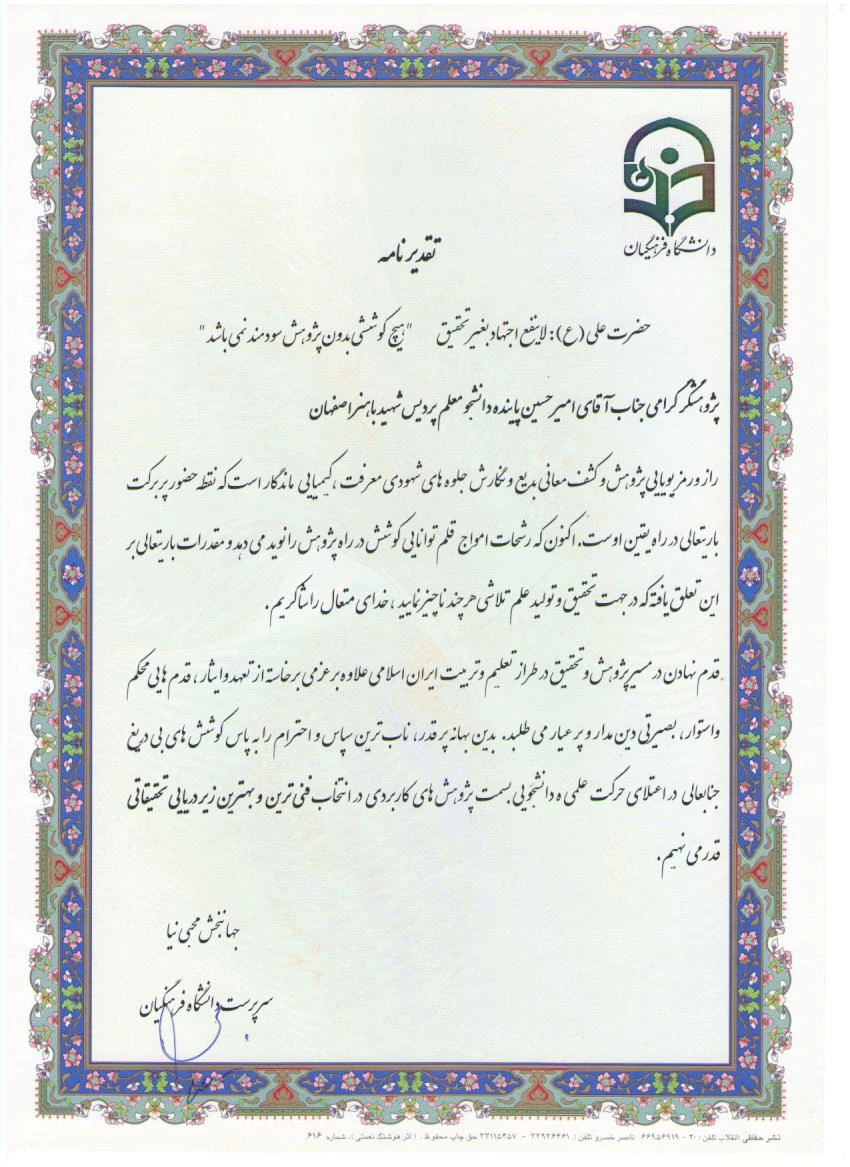 دانشگاه فرهنگیان
تقدیر نامه
حضرت علی (ع): لاینفع اجتهاد بغیر تحقیق "هیچ کوششی بدون پژوهش سودمند نمی باشد"
پژوهشگر گرامی جناب آقای امیر حسین پاینده دانشجو معلم پردیس شهید باهنر اصفهان
راز و رمز پویایی پژوهش و کشف معانی بدیع و نگارش جلوه های شهودی معرفت ، کیمیایی ماندگار است که نقطه حضور پر برکت
باریتعالی در راه یقین اوست. اکنون که رشحات امواج قلم توانایی کوشش در راه پژوهش را نوید می دهد و مقدرات باریتعالی بر
این تعلق یافته که در جهت تحقیق و تولید علم تلاشی هر چند ناچیز نمایید ، خدای متعال را شاکریم.
قدم نهادن در مسیر پژوهش و تحقیق در طراز تعلیم و تربیت ایران اسلامی علاوه بر عزمی برخاسته از تعهد و ایثار ، قدم هایی محکم
واستوار ، بصیرتی دین مدار و پر عیار می طلبد. بدین بهانه پر قدر، ناب ترین سپاس و احترام را به پاس کوشش های بی دریغ
جنابعالی در اعتلای حرکت علمی ه دانشجویی بسمت پژوهش های کاربردی در انتخاب فنی ترین و بهترین زیر دریایی تحقیقاتی
قدر می نهیم.
جهانبخش محبی نیا
سرپرست دانشگاه فرهنگیان
نشر حفظی (انقلاب تلفن : ۲۰ - ۶۶۹۵۶۹۱۹ ناصر خسرو تلفن : ۳۳۹۳۶۴۶۱ - ۳۳۱۱۵۴۵۷ حق چاپ محفوظ . ( اثر هوشنگ نعمتی ) . شماره ۶۱۶